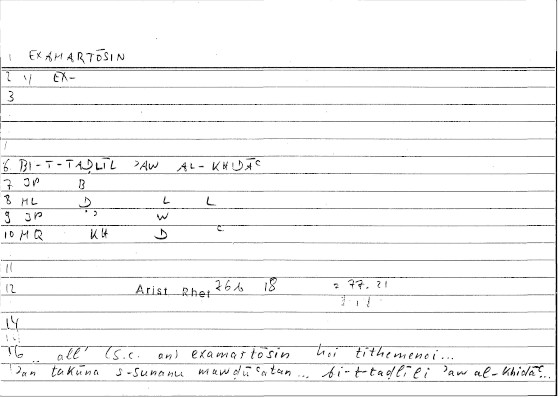 1 EXAMARTŌSIN
2 " EX-
3
6 BI-T-TAḌLĪL ʾAW AL-KHIDĀʿ
7 JP B
8 HL Ḍ L L
9 JP ʾ W
10 MQ KH D ʿ
11
12 Arist Rhet 76b 18 = 77.21
14
16 .. all' (s.c. an) examartōsin hoi tithemenoi...
ʾan takūna s-sunanu mawḍūʿatan... bi-t-taḍlīli ʾaw al-khidāʿ...